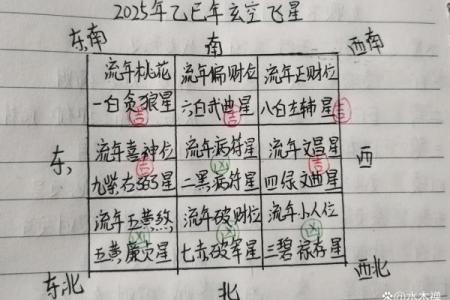 2025年乙巳年玄空飞星
东南 南 西南
流年桃花 流年偏财位 流年正财位
一白贪狼星 六白武曲星 八白左辅星
吉 吉 吉
东 流年喜神位 流年病符星 流年文昌星 西
吉 凶 吉
九紫右弼星 二黑病符星 四绿文曲星
流年五黄煞 流年破财位 流年小人位
凶 凶 凶
五黄廉贞星 七赤破军星 三碧禄存星
东北 北 西北